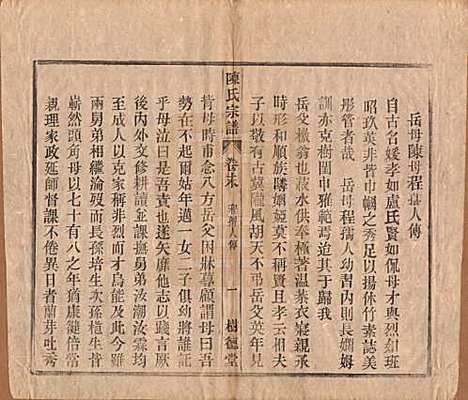 岳母陳母程孺人傳
自古名媛孝如盧氏賢如佩母才與烈如班
昭玖英非皆巾幗之秀足以揚休竹素誌美
彤管者哉 岳母程孺人幼嫻內則長嫻姆
訓亦克樹閨中雅範焉迨其于歸我
岳父樵翁也菽水供奉極著溫恭衣寒親承
時形和順族鄰姻婭莫不稱賢且孝云相夫
子以敬大有古冀隴風胡天不弔岳父英年見
陳氏宗譜 卷末 孺人傳 一 樹德堂
背母時甫念八方岳父困牀蓐顧謂母曰吾病
勢在不起爾姑年邁一女二子俱幼將誰託
母泣而言曰是吾責也遂矢靡他志以踐言厥
後內外交修耕讀並課撫舅弟汝潮汝霖均
至成人以克家稱非烈而才烏能及此今
兩舅弟相繼淪沒而長孫培生次孫穗生皆
嶄然頭角母以七十有八之年猶康健倍常
親理家政延師督課不倦異日者蘭芽吐秀